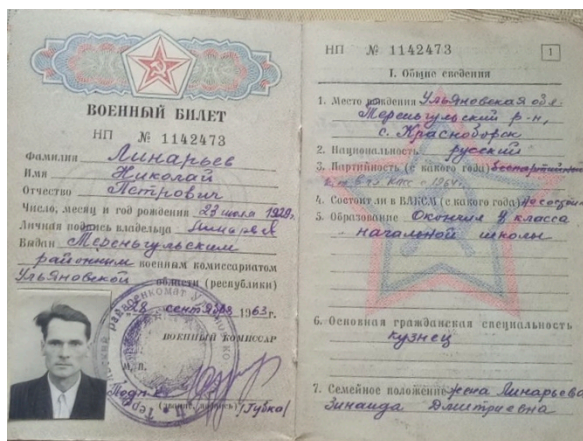 ВОЕННЫЙ БИЛЕТ
НП № 1142473
Фамилия Линарьев
Имя Николай
Отчество Петрович
Число, месяц и год рождения 23 1929.
Личная подпись владельца Линарьев
Выдан Тереньгульским
районным военным комиссариатом
Ульяновской области (республики)
28 сентября 1963г.
ВОЕННЫЙ КОМИССАР
м.п.
Подп-к /Губка/
(звание, подпись)
НП № 1142473
1
I. Общие сведения
1. Место рождения Ульяновская обл.
Тереньгульский р-н,
с. Красноборск
2. Национальность русский
3. Партийность (с какого года) беспартийный
КПСС с 1964г.
4. Состоит ли в ВЛКСМ (с какого года) не состоит
5. Образование Окончил класса
начальной школы
6. Основная гражданская специальность
кузнец
7. Семейное положение жена Линарьева
Зинаида Дмитриевна